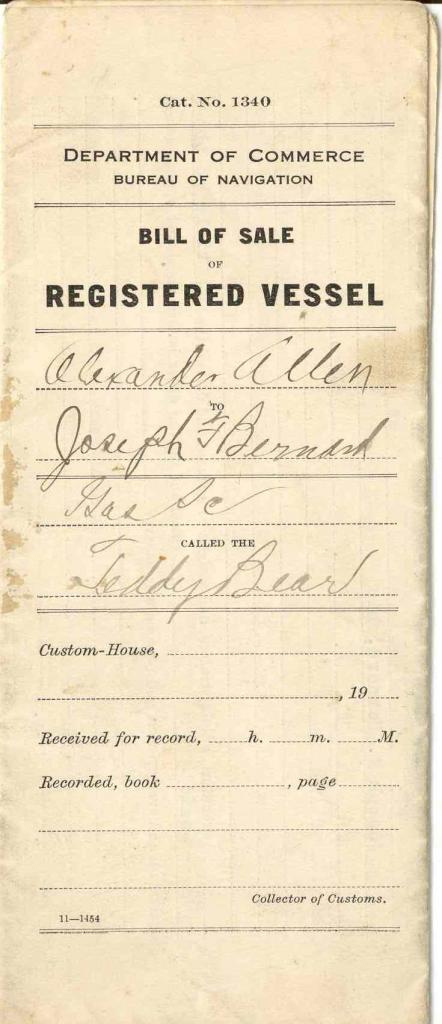 Cat. No. 1340
DEPARTMENT OF COMMERCE
BUREAU OF NAVIGATION
BILL OF SALE
OF
REGISTERED VESSEL
Alexander Allen
TO
Joseph F Bernard
Gas Sc
CALLED THE
Teddy Bear
Custom-House,
, 19
Received for record, h. m. M.
Recorded, book , page
Collector of Customs.
11—1454